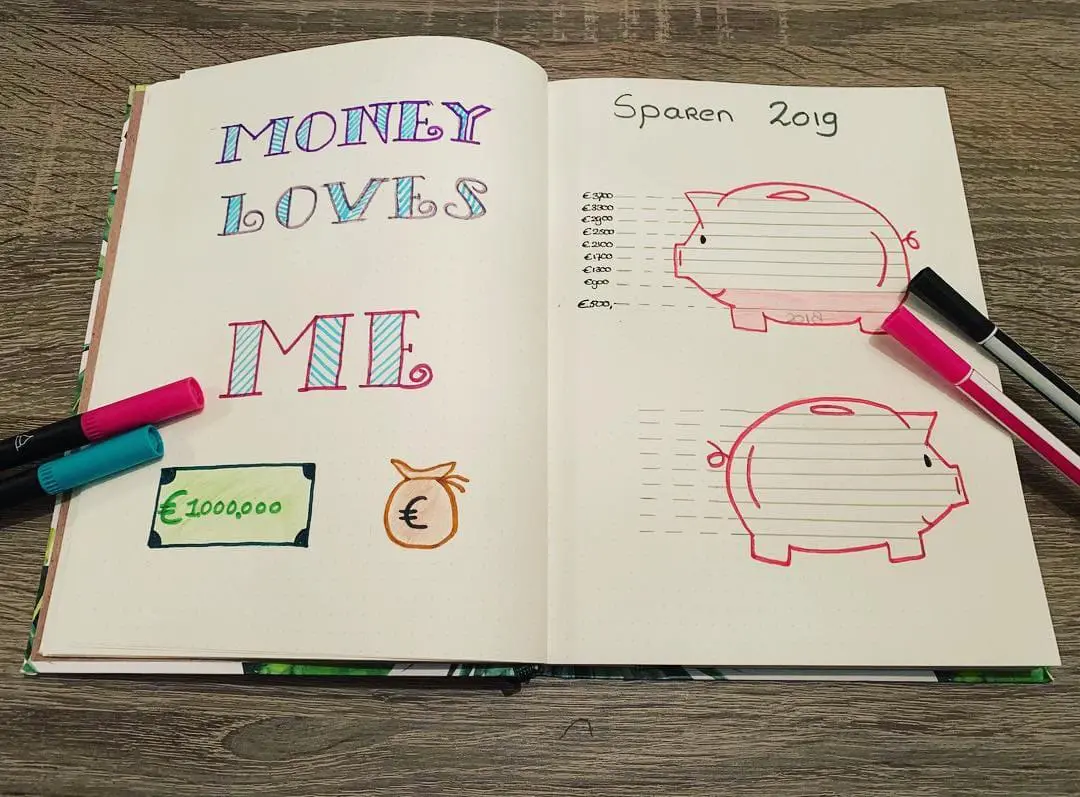 MONEY
LOVES
ME
€1.000,000
€
Sparen 2019
€3700
€3300
€2900
€2500
€2100
€1700
€1300
€900
€500,-
2018